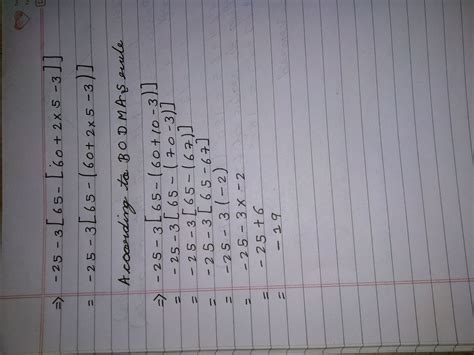 ⇒ -25-3[65-[60+2×5-3]]
= -25-3[65-(60+2×5-3)]
According to BODMAS rule
⇒ -25-3[65-(60+10-3)]
= -25-3[65-(70-3)]
= -25-3[65-(67)]
= -25-3[65-67]
= -25-3(-2)
= -25-3×-2
= -25+6
= -19